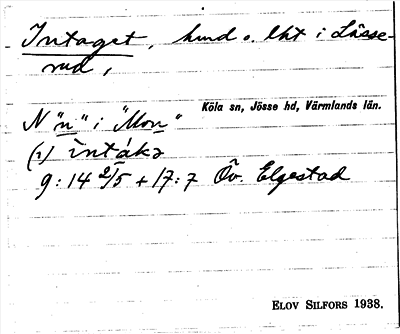 Intaget, hmd o. lht i Lässe-
rud,
Köla sn, Jösse hd, Värmlands län.
N "n" i "Mon"
(1) ìntákə
9:14 2/5 + 17:7 Öv. Elgestad
ELOV SILFORS 1938.